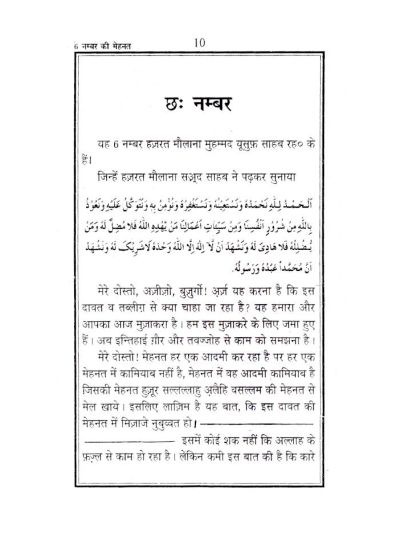 6 नम्बर की मेहनत
10
छः नम्बर
यह 6 नम्बर हज़रत मौलाना मुहम्मद यूसुफ़ साहब रह० के
हैं।
जिन्हें हज़रत मौलाना सअ़द साहब ने पढ़कर सुनाया
اَلْحَمْدُ لِلّٰهِ نَحْمَدُهٗ وَنَسْتَعِيْنُهٗ وَنَسْتَغْفِرُهٗ وَنُؤْمِنُ بِهٖ وَنَتَوَكَّلُ عَلَيْهِ وَنَعُوْذُ
بِاللّٰهِ مِنْ شُرُوْرِ اَنْفُسِنَا وَمِنْ سَيِّئَاتِ اَعْمَالِنَا مَنْ يَّهْدِهِ اللّٰهُ فَلَا مُضِلَّ لَهٗ وَمَنْ
يُّضْلِلْهُ فَلَا هَادِىَ لَهٗ وَنَشْهَدُ اَنْ لَّا اِلٰهَ اِلَّا اللّٰهُ وَحْدَهٗ لَا شَرِيْكَ لَهٗ وَنَشْهَدُ
اَنَّ مُحَمَّداً عَبْدُهٗ وَرَسُوْلُهٗ.
मेरे दोस्तो, अज़ीज़ो, बुज़ुर्गो! अ़र्ज़ यह करना है कि इस
दावत व तब्लीग़ से क्या चाहा जा रहा है? यह हमारा और
आपका आज मुज़ाकरा है। हम इस मुज़ाकरे के लिए जमा हुए
हैं। अब इन्तिहाई ग़ौर और तवज्जोह से काम को समझना है।
मेरे दोस्तो! मेहनत हर एक आदमी कर रहा है पर हर एक
मेहनत में कामियाब नहीं है, मेहनत में वह आदमी कामियाब है
जिसकी मेहनत हुज़ूर सल्लल्लाहु अ़लैहि वसल्लम की मेहनत से
मेल खाये। इसलिए लाज़िम है यह बात, कि इस दावत की
मेहनत में मिज़ाजे नुबुव्वत हो।
इसमें कोई शक नहीं कि अल्लाह के
फ़ज़्ल से काम हो रहा है। लेकिन कमी इस बात की है कि कारे